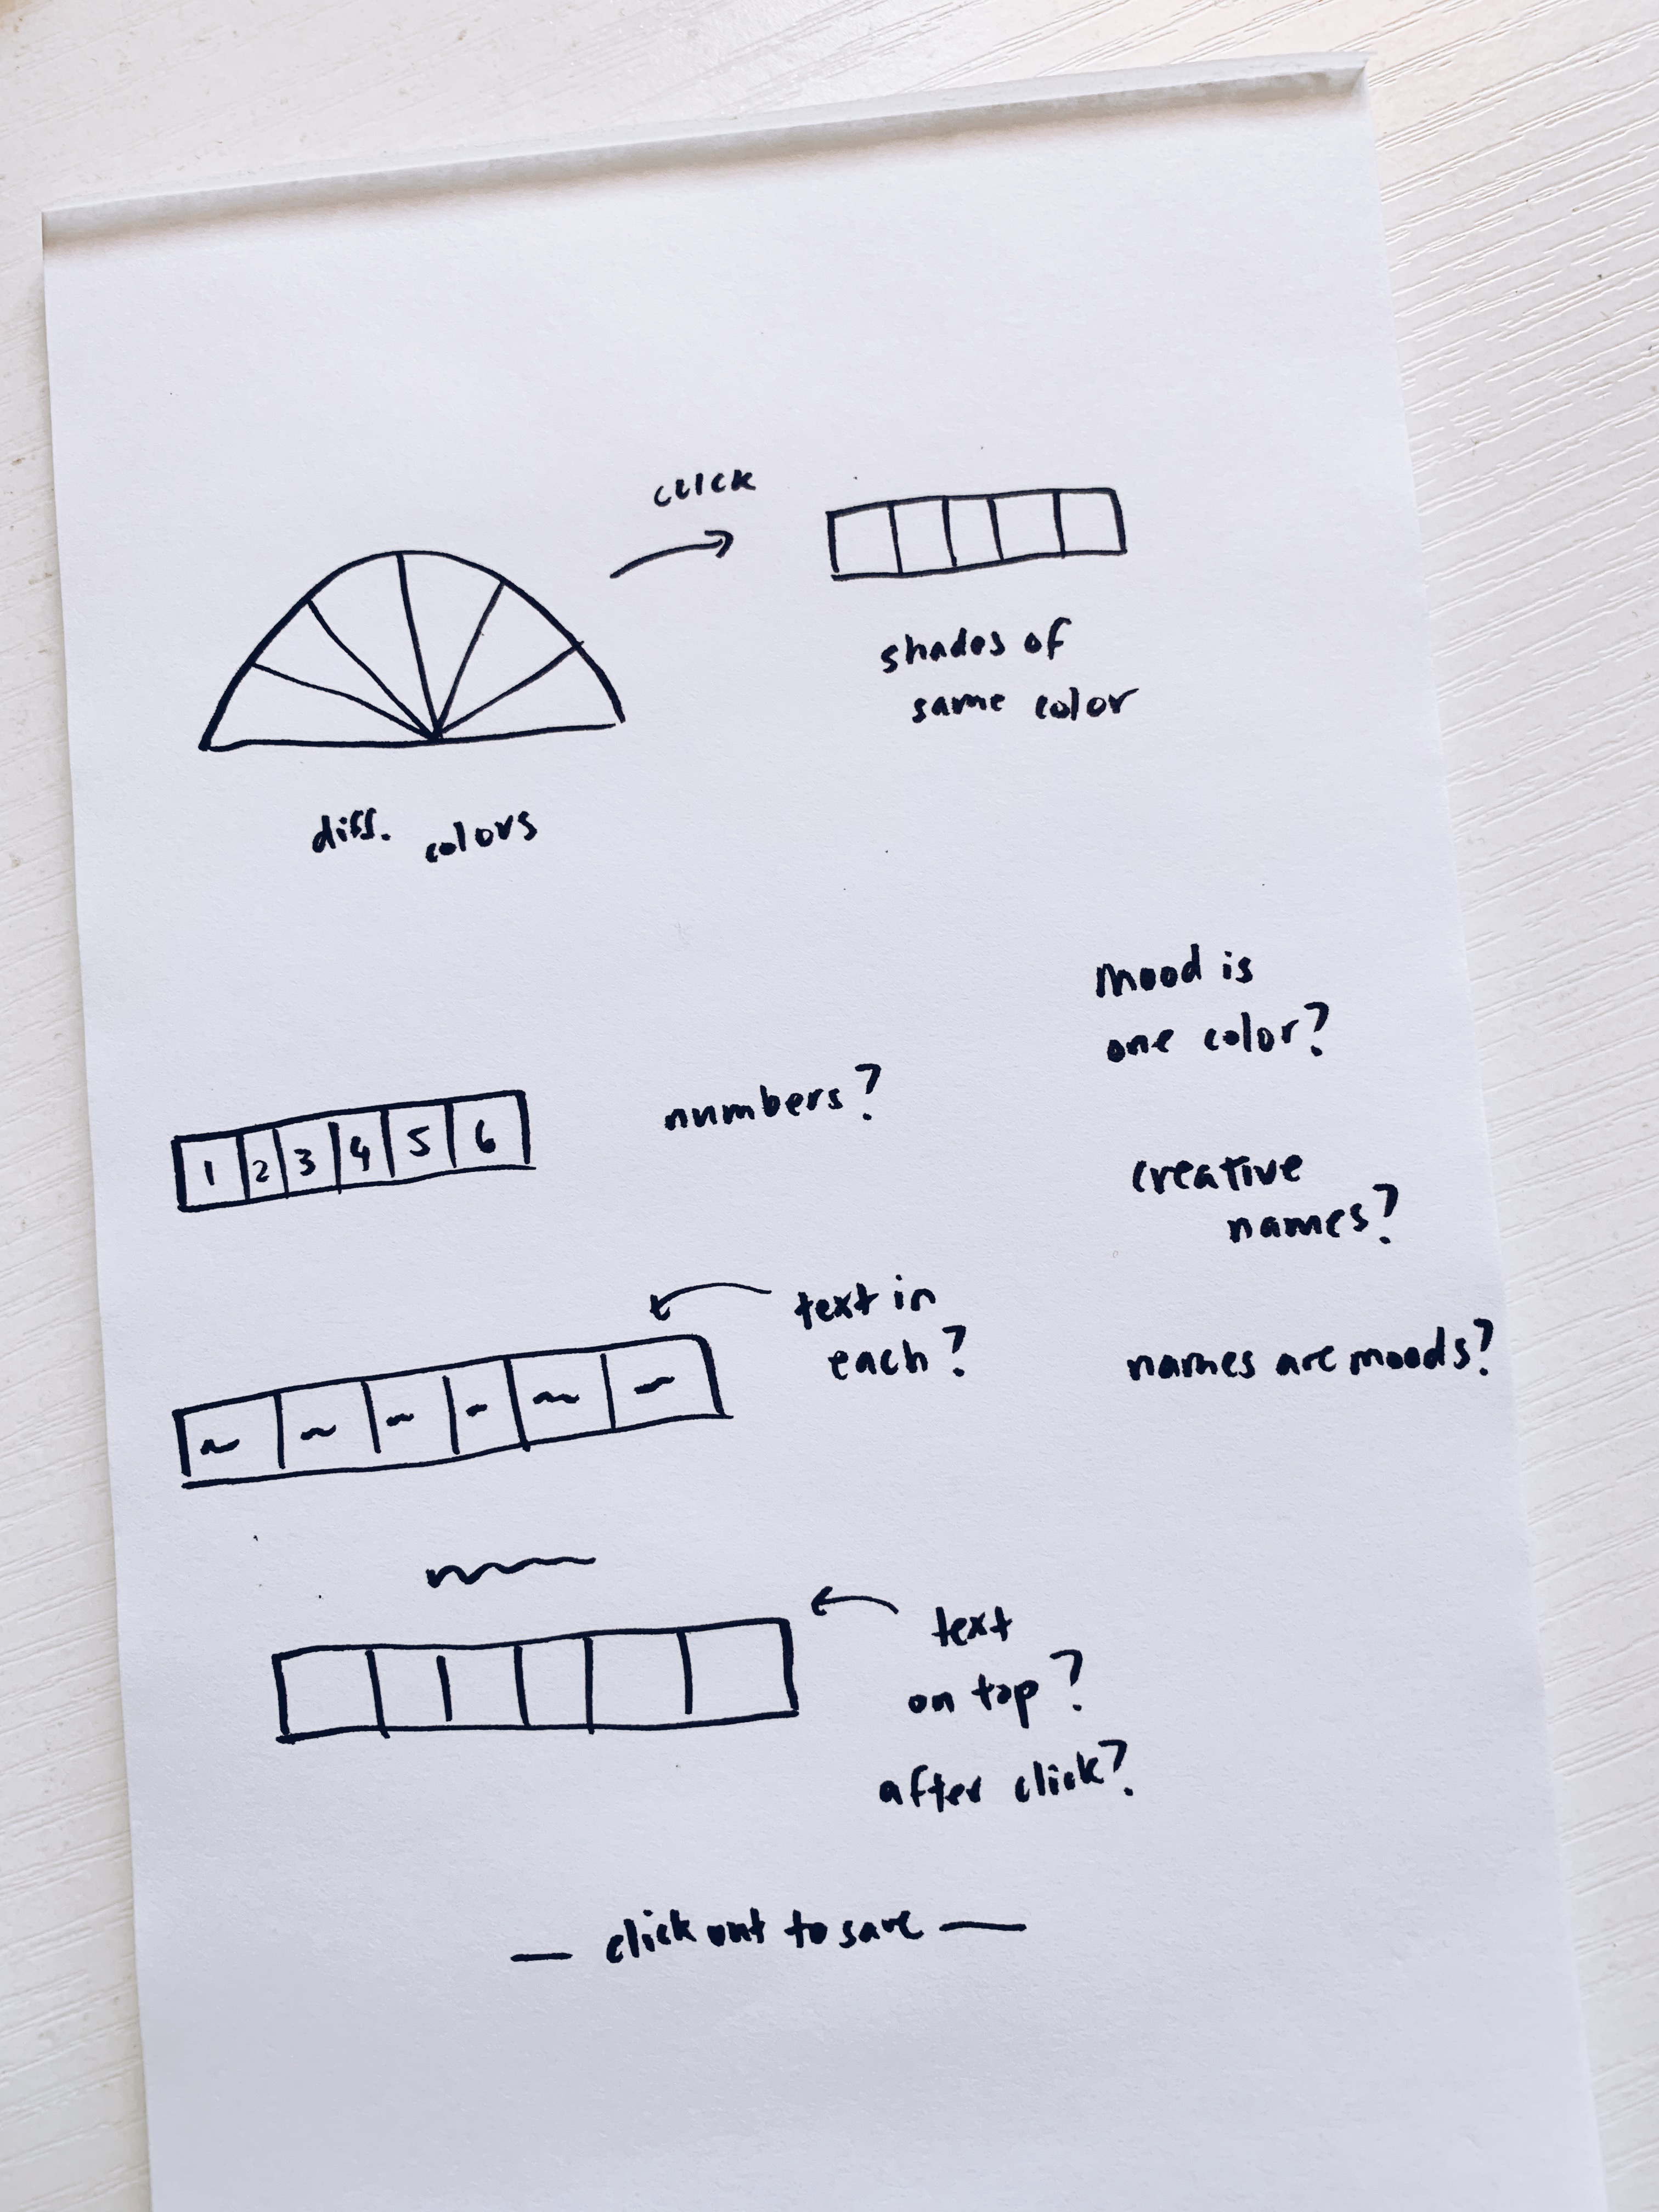 click
shades of
same color
diff. colors
mood is
one color?
numbers?
1 2 3 4 5 6
creative
names?
text in
each?
names are moods?
text
on top?
after click?
— click out to save —